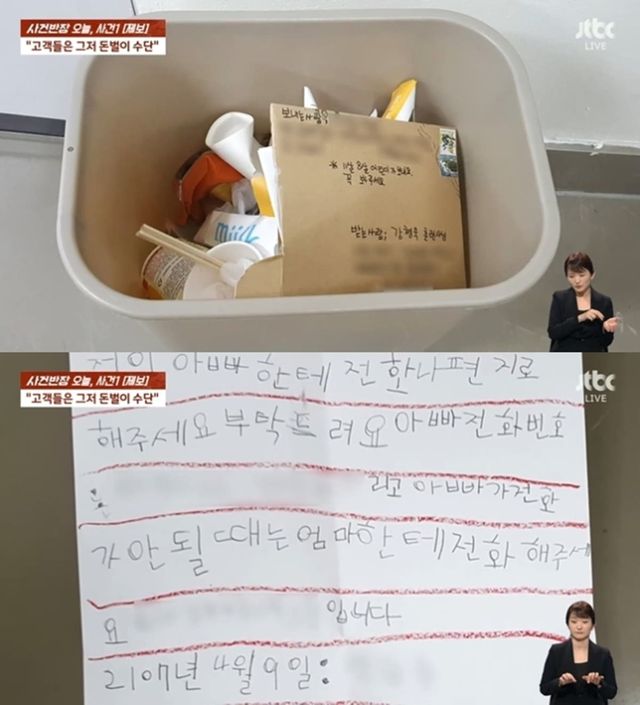 사건반장 오늘, 사건1 [제보]
"고객들은 그저 돈벌이 수단"
jtbc
LIVE
보내는사람
* 11살 8살 어린이가
꼭 봐주세요
받는사람; 강형욱 훈련사님
milk
사건반장 오늘, 사건1 [제보]
"고객들은 그저 돈벌이 수단"
jtbc
LIVE
아빠한테 전화나 편지로
해주세요 부탁드려요 아빠전화번호
: 리고 아빠가전화
가 안 될 때는 엄마한테 전화 해주세
요 입니다
2107년 4월 9일: